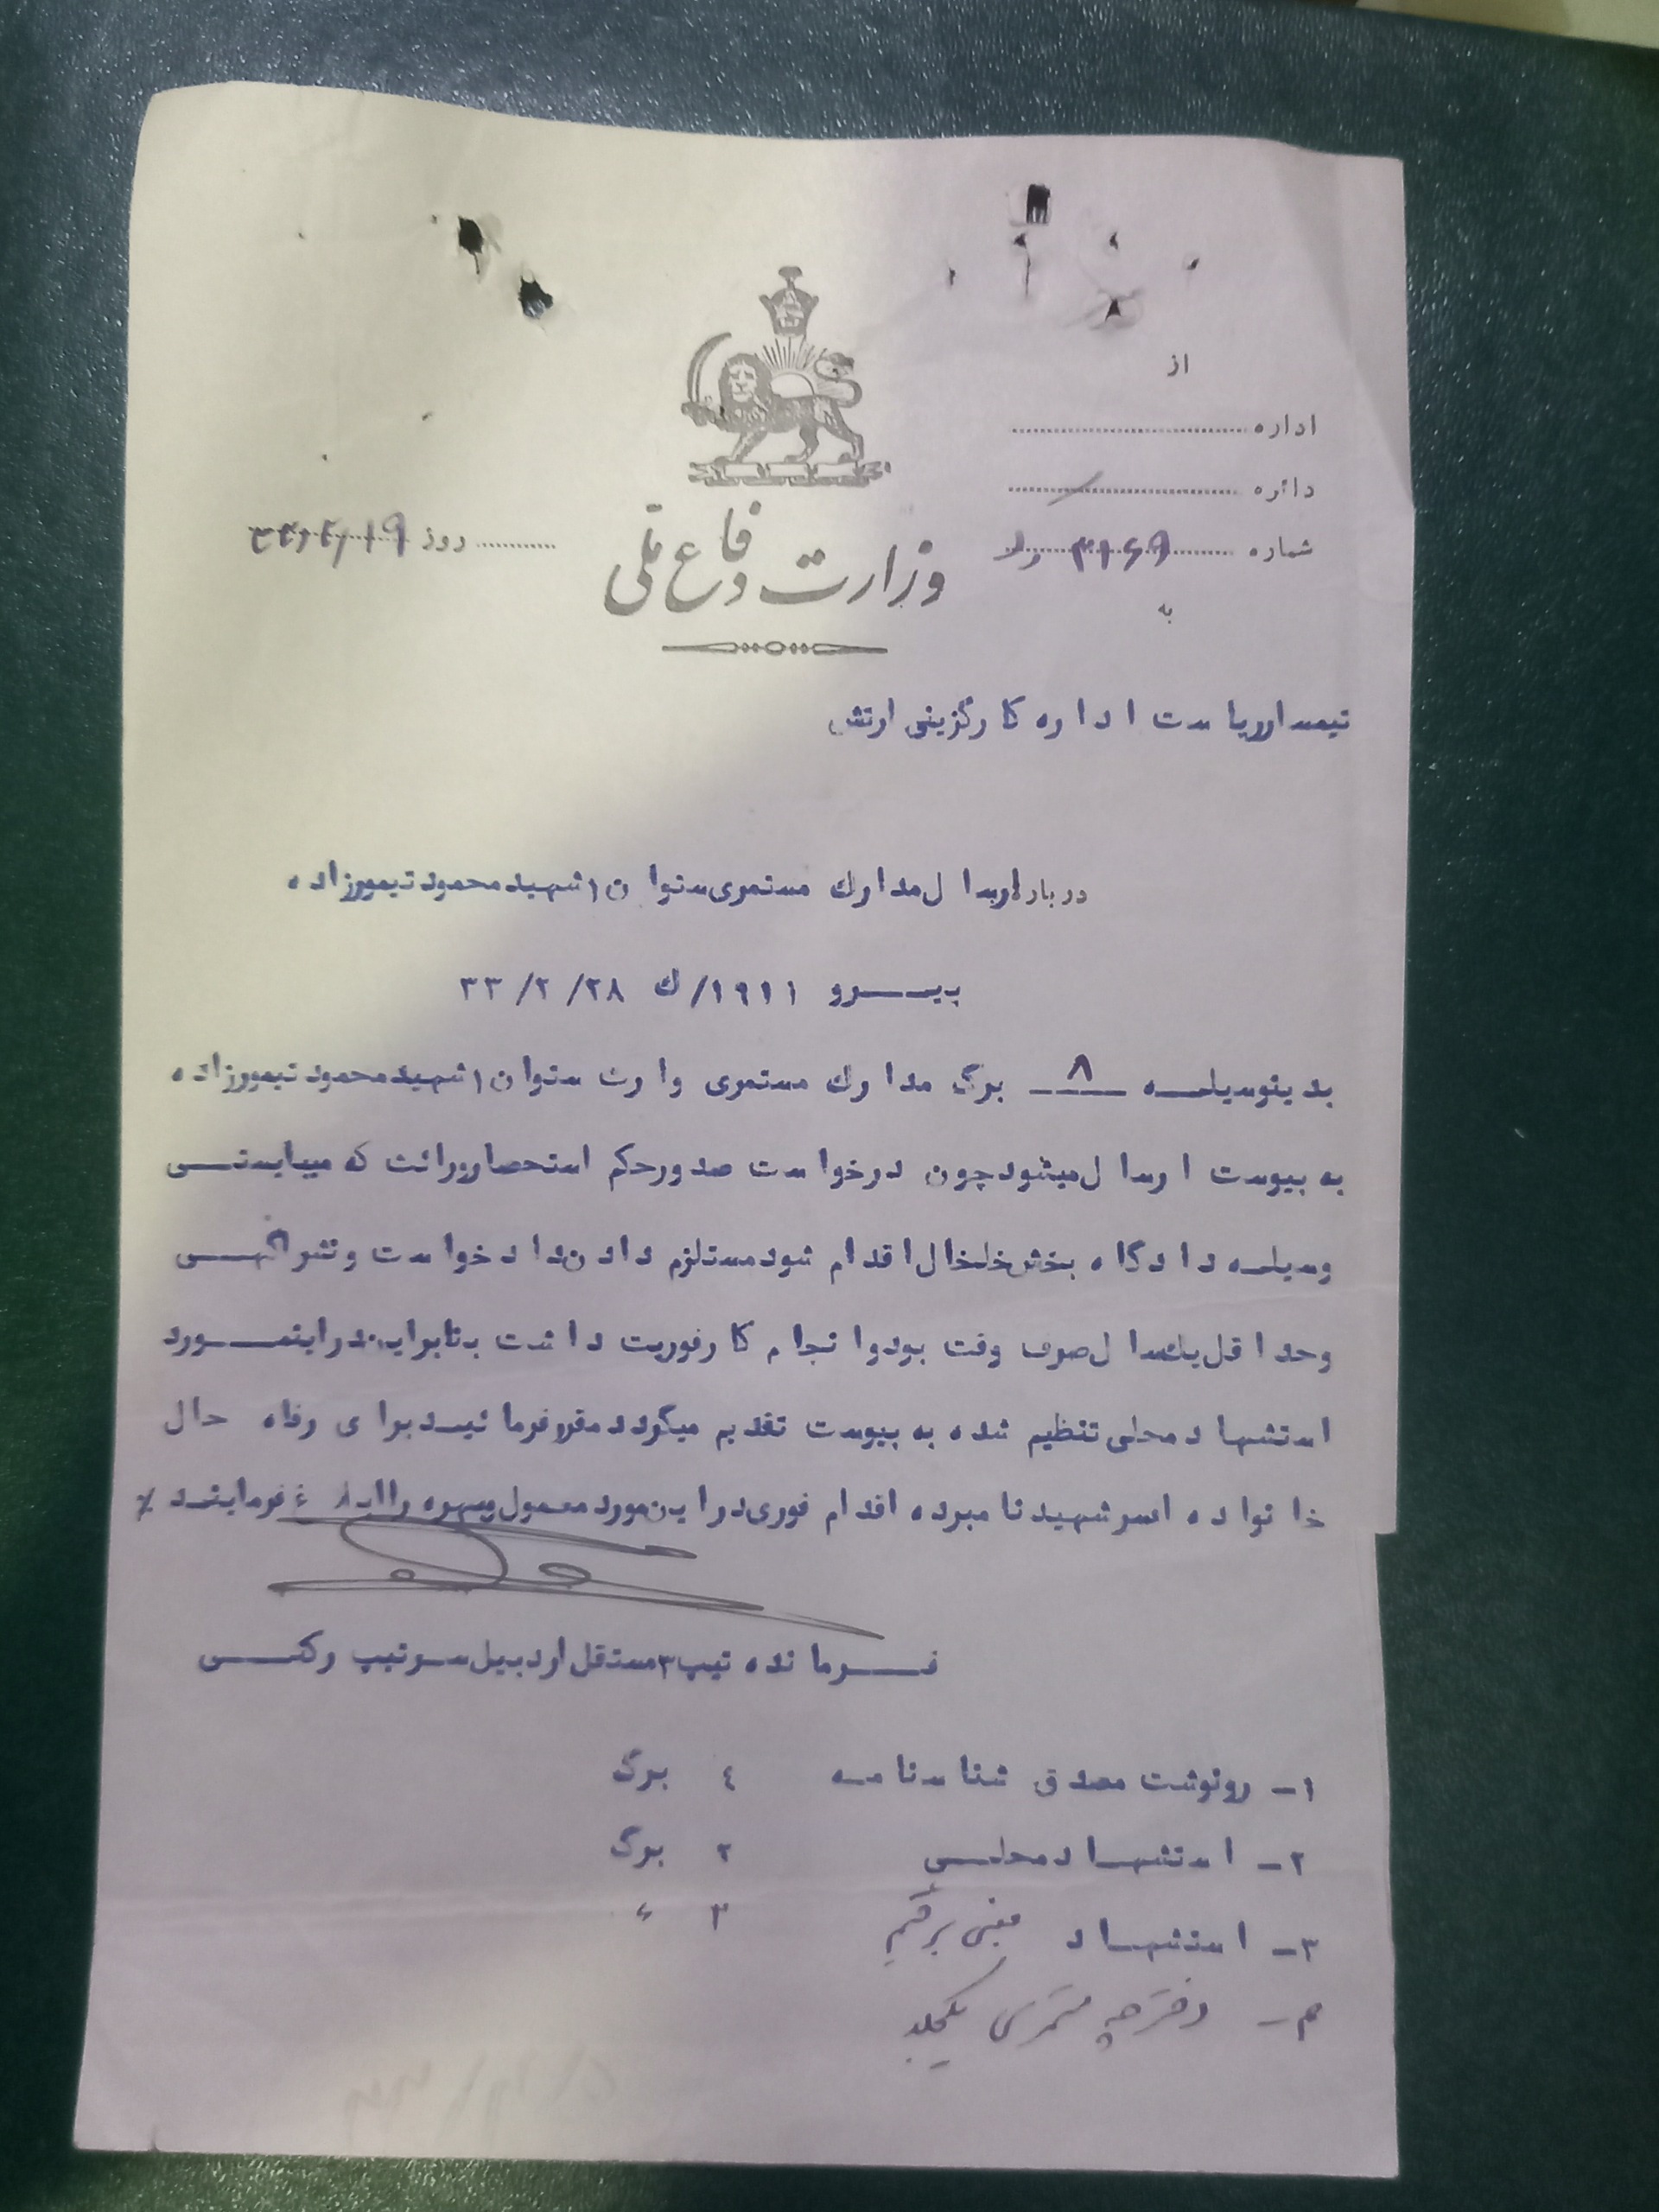 از
اداره
دائره
شماره ۳۱۶۹
روز
وزارت دفاع ملی
به
تیمسار ریاست اداره کارگزینی ارتش
درباره ارسال مدارك مستمری ستوان ۱ شهید محمود تیمورزاده
پیرو ۱۹۱۱/ك ۲۸/۲/۳۳
بدینوسیله ۸ برگ مدارك مستمری وارث ستوان ۱ شهید محمود تیمورزاده
به پیوست ارسال میشود چون درخواست صدور حکم استحصار وراثت که میبایستی
وسیله دادگاه بخش خلخال اقدام شود مستلزم دادن دادخواست و نشر آگهی
وحداقل یکسال صرف وقت بود و انجام کار فوریت داشت بنابراین در اینمورد
استشهاد محلی تنظیم شده به پیوست تقدیم میگردد مقرر فرمائید برای رفاه حال
خانواده افسر شهید نامبرده اقدام فوری در این مورد معمول و بهره را ابلاغ فرمایند ٪
فرمانده تیپ ۳ مستقل اردبیل سرتیپ رکنی
۱ـ رونوشت مصدق شناسنامه ٤ برگ
۲ـ استشهاد محلی ۲ برگ
۳ـ استشهاد مبنی بر قیم ۳ "
۴ـ دفترچه مستمری یکجلد